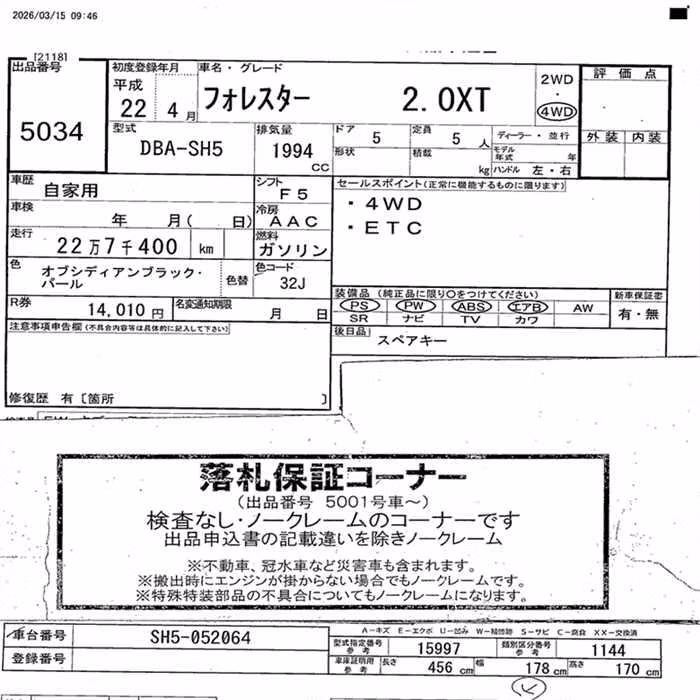 2026/03/15 09:46
[2118]
出品番号
5034
初度登録年月
平成
22 4 月
車名・グレード
フォレスター 2.0XT
2WD
・
4WD
評価点
外装 内装
型式
DBA-SH5
排気量
1994
CC
ドア
5
定員
5 人
形状
積載
kg
ディーラー・並行
モデル年式
年
ハンドル 左・右
車歴
自家用
シフト
F5
車検
年 月( 日)
冷房
AAC
走行
22万7千400 km
燃料
ガソリン
色
オブシディアンブラック・パール
色替
色コード
32J
R券
14,010 円
名変通知期限
月 日
セールスポイント(正常に機能するものに限ります)
・4WD
・ETC
装備品 (純正品に限り○をつけてください)
PS PW ABS エアB AW
SR ナビ TV カワ
新車保証書
有・無
後日品
スペアキー
注意事項申告欄(不具合内容等は具体的に記入して下さい)
修復歴 有[箇所 ]
落札保証コーナー
(出品番号 5001号車～)
検査なし・ノークレームのコーナーです
出品申込書の記載違いを除きノークレーム
※不動車、冠水車など災害車も含まれます。
※搬出時にエンジンが掛からない場合でもノークレームです。
※特殊特装部品の不具合についてもノークレームになります。
車台番号
SH5-052064
登録番号
A-キズ E-エクボ U-凹み W-補修跡 S-サビ C-腐食 XX-交換済
型式指定番号
参考
15997
類別区分番号
参考
1144
車庫証明用
参考
長さ
456 cm
幅
178 cm
高さ
170 cm